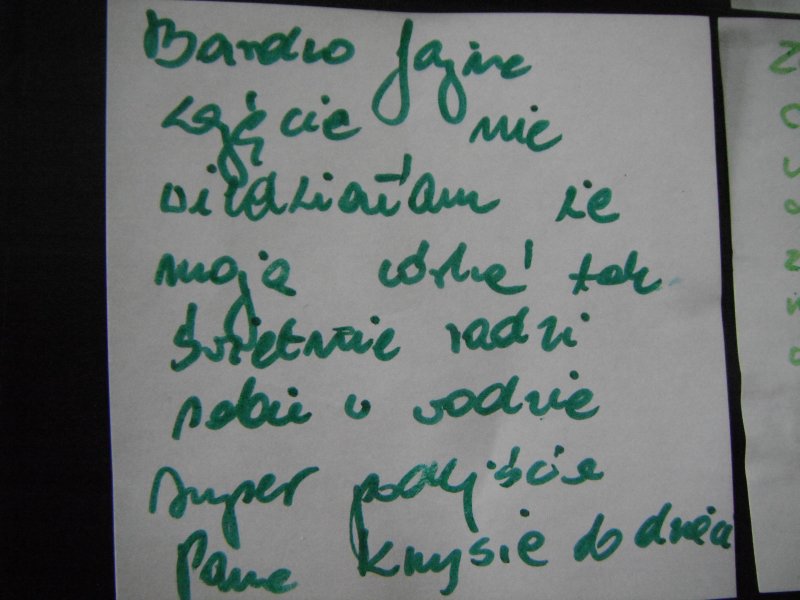 Bardzo fajne
zajęcie nie
widziałam że
moja córka tak
świetnie radzi
sobie w wodzie
super podejście
Pana Krzysie do dzieci